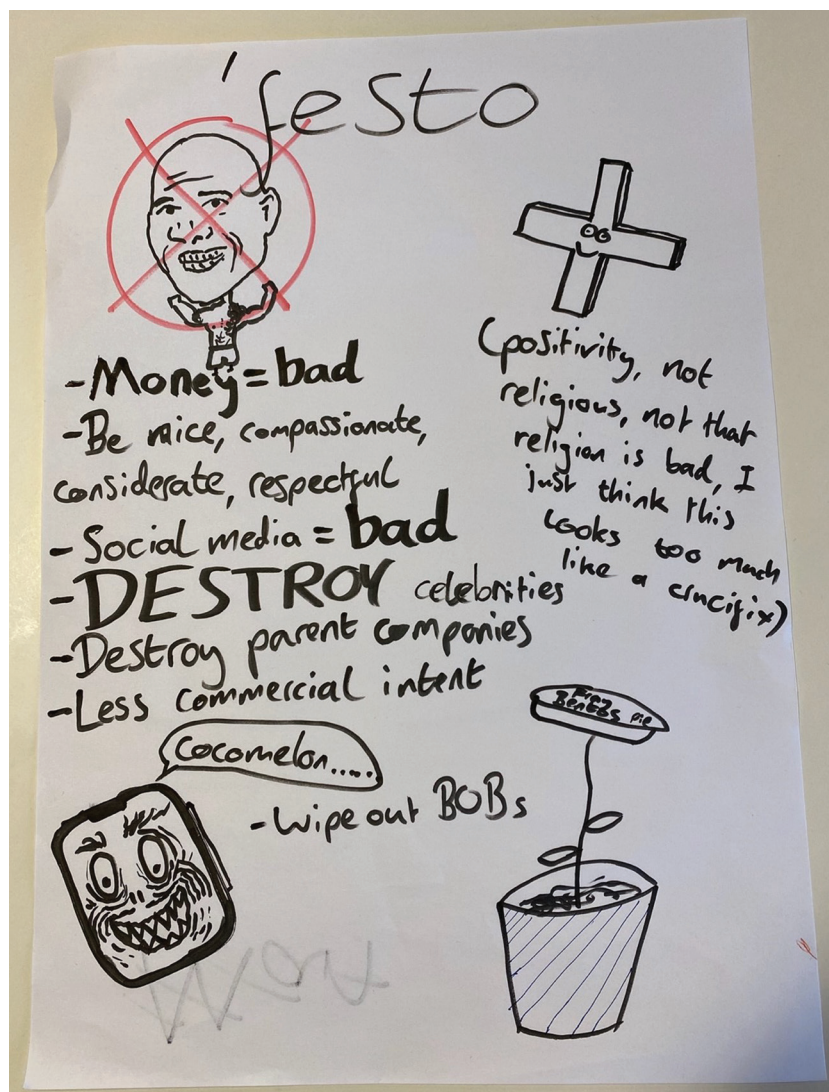 'festo
-Money=bad
-Be nice, compassionate,
considerate, respectful
-Social media = bad
-DESTROY celebrities
-Destroy parent companies
-Less commercial intent
(positivity, not
religious, not that
religion is bad, I
just think this
looks too much
like a crucifix)
Cocomelon.....
-wipe out BOBs
Fray
Bentos pie